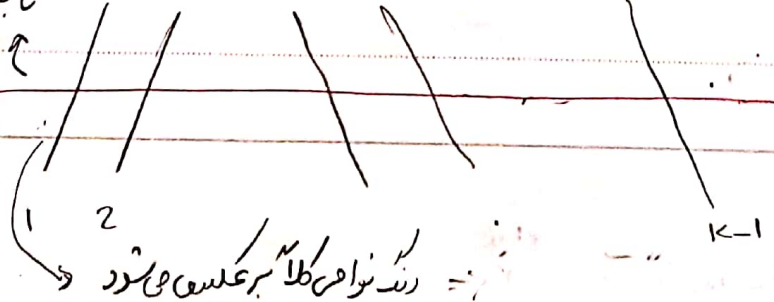 1 2 K-1
رنگ نواحی کلاً برعکس می‌شود